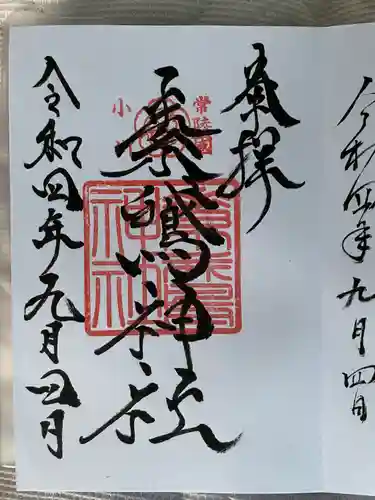 令和四年九月四日
奉拝
常陸國
素鵞神社
小
素鵞
神社
令和四年九月四日